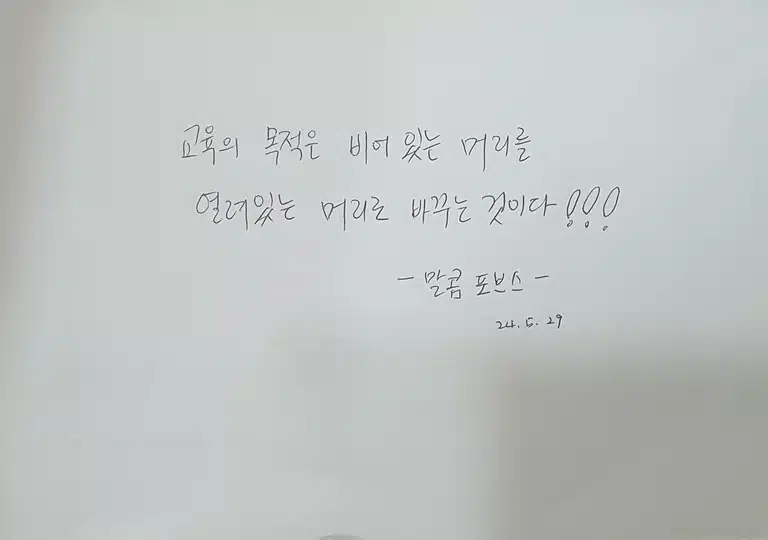 교육의 목적은 비어 있는 머리를
열려있는 머리로 바꾸는 것이다!!!
- 말콤 포브스 -
24. 5. 29